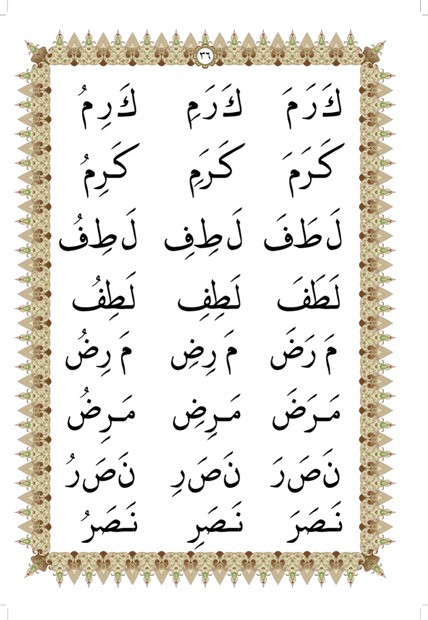 ٣٦
كَ رَ مَ كَ رَ مِ كَ رِ مُ
كَرَمَ كَرَمِ كَرِمُ
لَ طَ فَ لَ طِ فِ لَ طِ فُ
لَطَفَ لَطِفِ لَطِفُ
مَ رَ ضَ مَ رِ ضِ مَ رِ ضُ
مَـرَضَ مَـرِضِ مَـرِضُ
نَ صَ رَ نَ صَ رِ نَ صَ رُ
نَـصَرَ نَـصَرِ نَـصَرُ